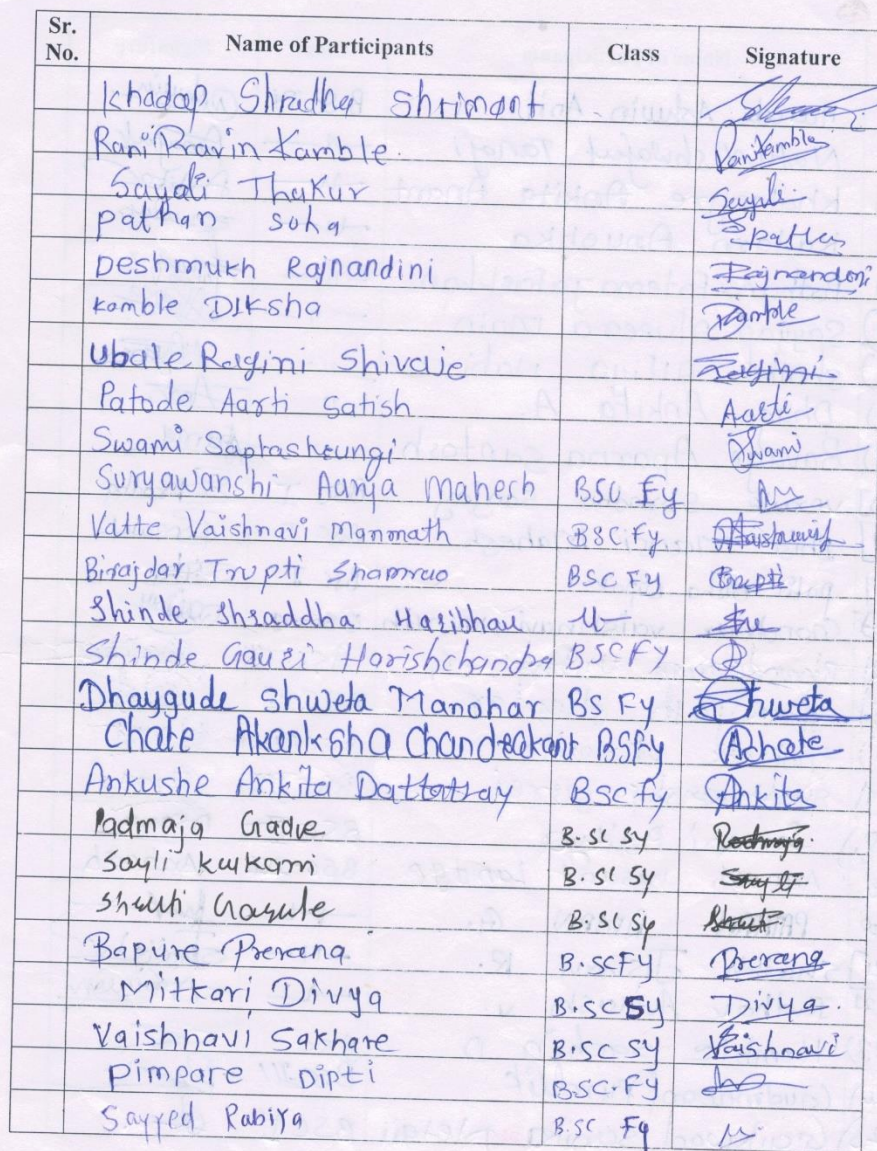 Sr. No. Name of Participants Class Signature
Khadap Shradha Shrimant
Rani Pravin Kamble. Ranikamble
Sayali Thakur Sayali
Pathan Soha Spathan
Deshmukh Rajnandini Rajnandini
Kamble Diksha Kamble
Ubale Ragini Shivaje Ragini
Patode Aarti Satish Aarti
Swami Saptashrungi Swami
Suryawanshi Aanya Mahesh BSC Fy
Vatte Vaishnavi Manmath BSC Fy Vaishnavi
Birajdar Trupti Shamrao BSC Fy Trupti
Shinde Shraddha Haribhau
Shinde Gauri Harishchandra BSC Fy
Dhaygude Shweta Manohar BS Fy Shweta
Chate Akanksha Chandrakant BSFy Achate
Ankushe Ankita Dattatray BSC Fy Ankita
Padmaja Gadve B.SC SY Padmaja
Sayli Kulkarni B.SC SY Sayli
Shruti Garule B.SC SY Shruti
Bapure Prerana B.SC FY Prerana
Mitkari Divya B.SC SY Divya.
Vaishnavi Sakhare B.SC SY Vaishnavi
Pimpare Dipti BSC.FY
Sayyed Rabiya B.SC Fy